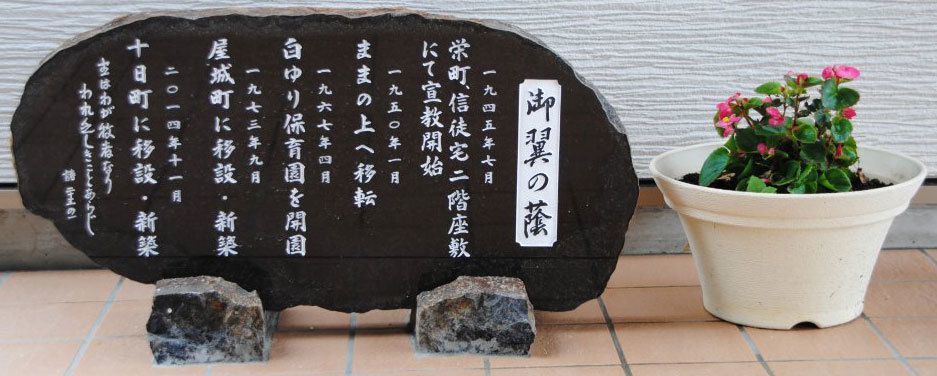 御翼の蔭
一九四五年七月
栄町、信徒宅二階座敷
にて宣教開始
一九五〇年一月
ままの上へ移転
一九六七年四月
白ゆり保育園を開園
一九七三年九月
屋城町に移設・新築
二〇一四年十一月
十日町に移設・新築
主はわが牧者なり
われ乏しきことあらじ
詩二三の一